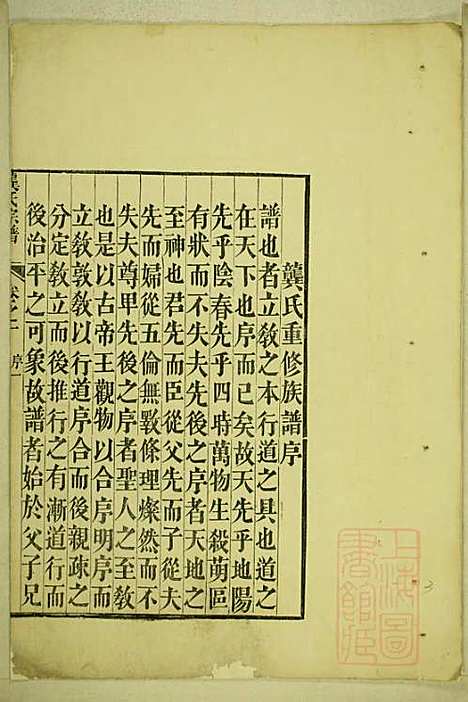 龔氏重修族譜序
譜也者立敎之本行道之具也道之
在天下也序而已矣故天先乎地陽
先乎陰春先乎四時萬物生殺萌區
有狀而不失夫先後之序者天地之
至神也君先而臣從父先而子從夫
先而婦從五倫無斁條理燦然而不
失夫尊卑先後之序者聖人之至敎
也是以古帝王觀物以合序明序而
立敎敦敎以行道序合而後親疎之
分定敎立而後推行之有漸道行而
後治平之可象故譜者始於父子兄
龔氏宗譜 卷之一 序
上海圖
書館藏